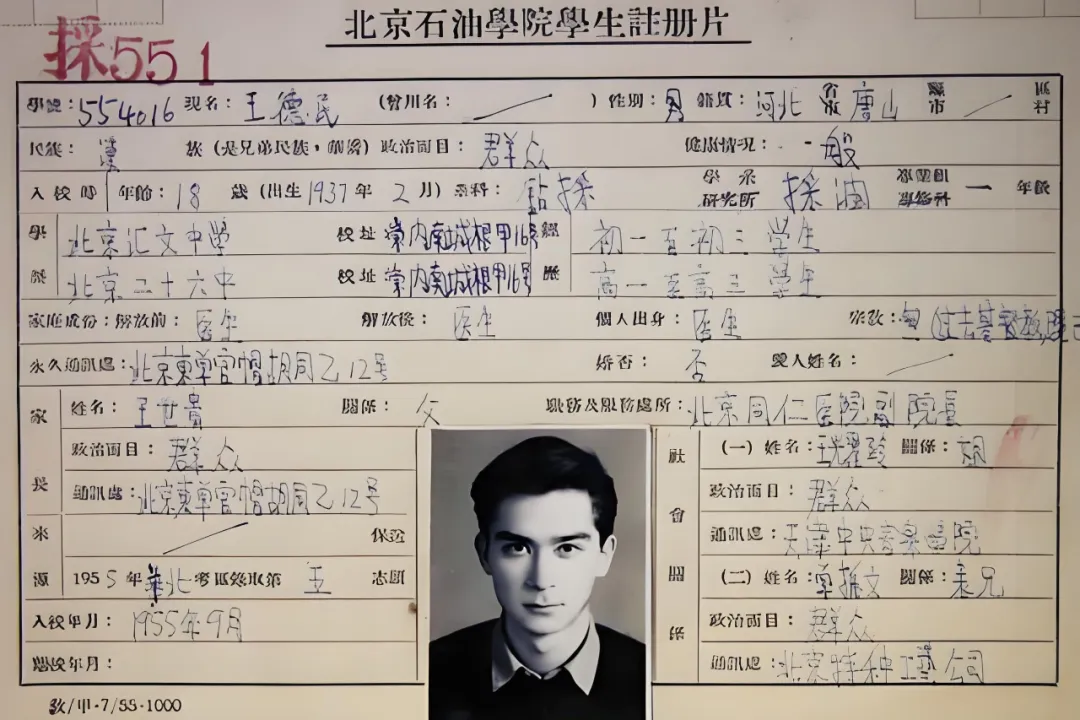 北京石油學院學生註册片
採55 1
學號：554016 現名：王德民 （曾用名： ） 性别：男 籍貫：河北省市 唐山縣市 區村
民族：漢族（是兄弟民族， ） 政治面目：群众 健康情况：一般
入校時 年齡：18歲（出生1937年2月） 系科：鈷採 學系研究所 採油 專業組專修科 一 年級
學 北京汇文中学 校址 崇内南城根甲16号 經 初一至初三学生
歷 北京二十六中 校址 崇内南城根甲16号 歷 高一至高三学生
家庭成份：解放前：医生 解放後：医生 個人出身：医生 宗教：
永久通訊處：北京東單官帽胡同乙12号 婚否：否 愛人姓名：
家長 姓名：王世貴 關係：父 職務及服務處所：北京同仁医院副院長
政治面目：群众
通訊處：北京東單官帽胡同乙12号
社會關係 （一）姓名： 關係：
政治面目：群众
通訊處：天津中央音樂學院
來源 保送
1955年华北考區錄取第五志願
（二）姓名： 關係：表兄
政治面目：群众
通訊處：北京特种工藝公司
入校年月：1955年9月
離校年月：
教/甲·7/55·1000